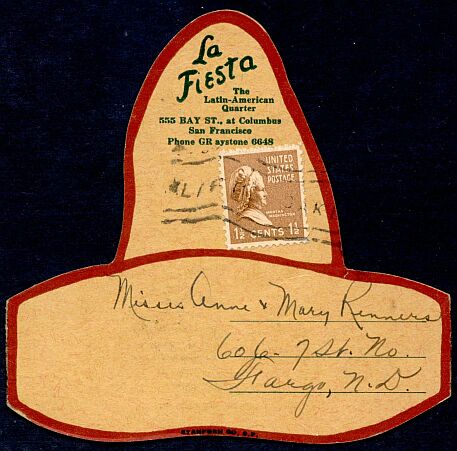 La
Fiesta
The
Latin-American
Quarter
555 BAY ST., at Columbus
San Francisco
Phone GR aystone 6648
UNITED
STATES
POSTAGE
MARTHA
WASHINGTON
1½ CENTS 1½
Misses Anne & Mary Renners
606- 7 St. No.
Fargo, N.D.
STANFORD CO. S.F.